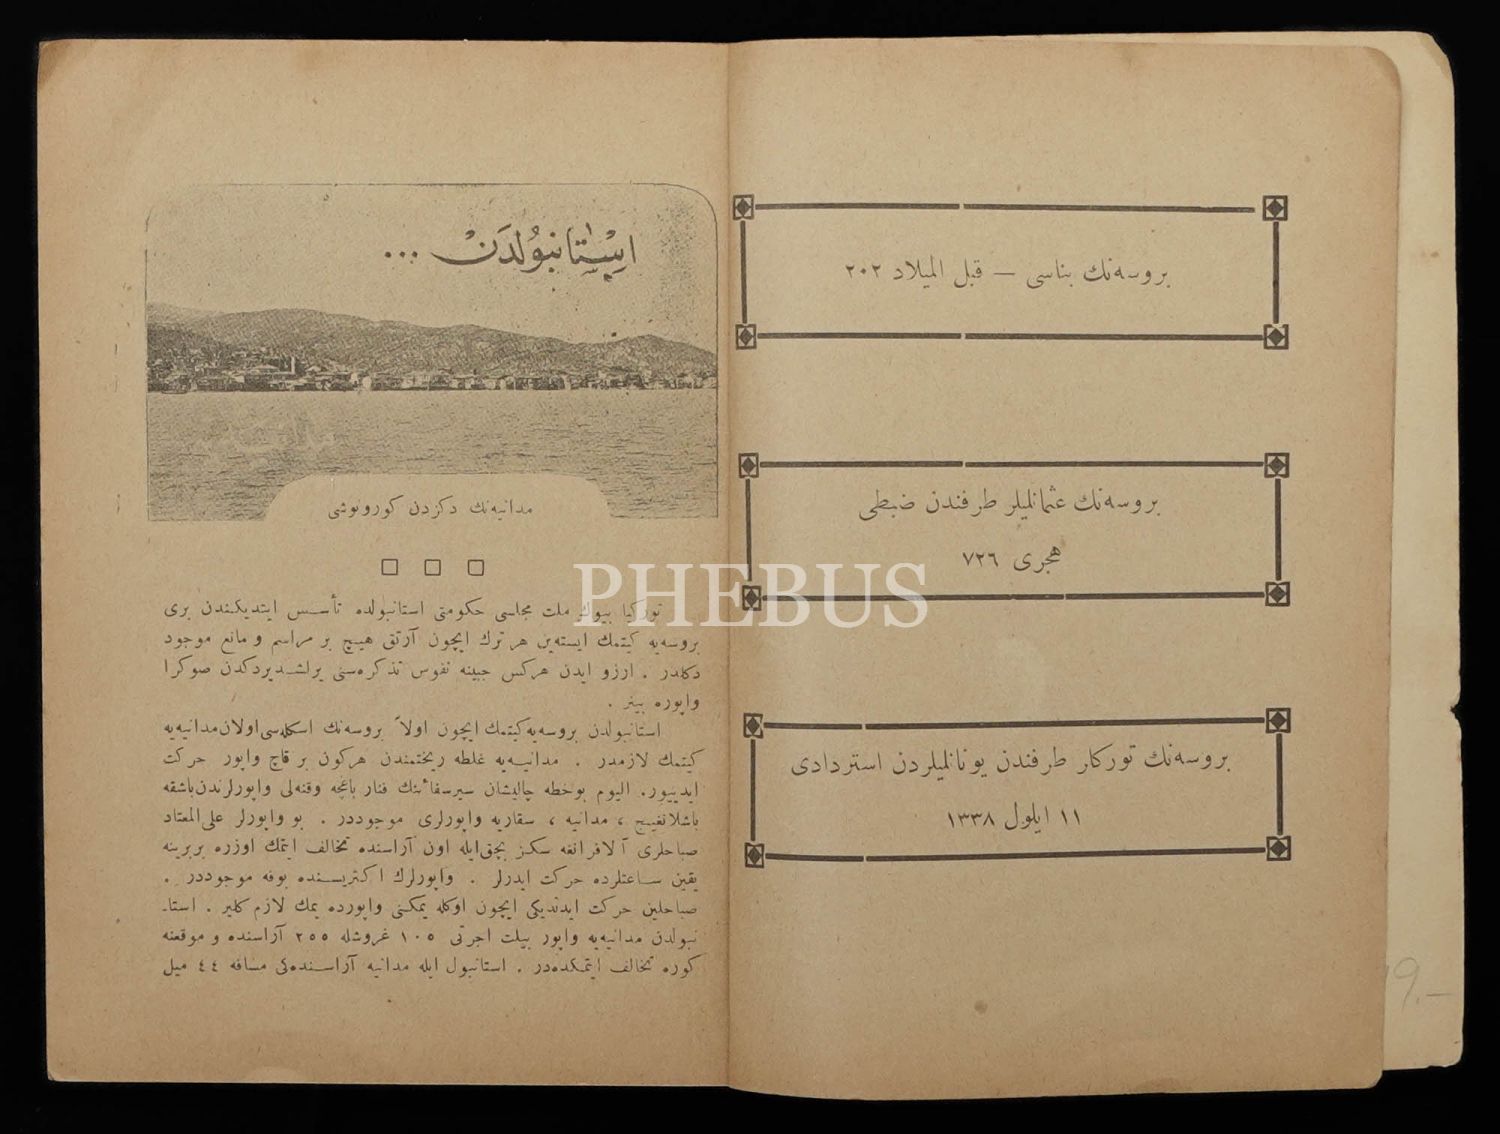 بروسه‌نك بناسی — قبل المیلاد ٢٠٢
بروسه‌نك عثمانلیلر طرفندن ضبطی
هجری ٧٢٦
بروسه‌نك توركلر طرفندن یونانلیلردن استردادی
١١ ایلول ١٣٣٨
استانبولدن ...
مدانیه‌نك دكزدن كورونوشی
توركیا بیوك ملت مجلسی حكومتی استانبولده تأسس ایتدیكندن بری
بروسه‌یه كیتمك ایسته‌ین هر ترك ایچون آرتق هیچ بر مراسم و مانع موجود
دكلدر . ارزو ایدن هركس جیبنه نفوس تذكره‌سنی یرلشدیردكدن صوكرا
واپوره بینر .
استانبولدن بروسه‌یه كیتمك ایچون اولاً بروسه‌نك اسكله‌سی اولان مدانیه‌یه
كیتمك لازمدر . مدانیه‌یه غلطه ریختمندن هركون بر قاچ واپور حركت
ایدییور. الیوم بو خطه چالیشان سیرسفائنك فنار باغچه وقنه‌لی واپورلرندن باشقه
باشلانغیج ، مدانیه ، سقاریه واپورلری موجوددر . بو واپورلر علی المعتاد
صباحلری آلافرانغه سكز بچق ایله اون آراسنده تخالف ایتمك اوزره بربرینه
یقین ساعتلرده حركت ایدرلر . واپورلرك اكثریسنده بوفه موجوددر .
صباحلین حركت ایدندیكی ایچون اوكله یمكنی واپورده یمك لازم كلیر . استا-
نبولدن مدانیه‌یه واپور بیلت اجرتی ١٠٥ غروشله ٢٥٥ آراسنده و موقعنه
كوره تخالف ایتمكده‌در . استانبول ایله مدانیه آراسنده‌كی مسافه ٤٤ میل
PHEBUS